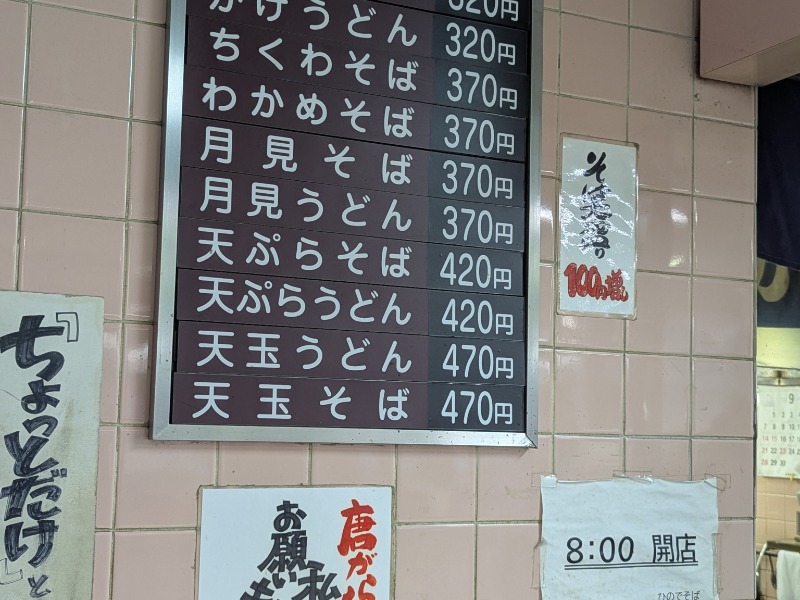 かけうどん 320円
ちくわそば 320円
わかめそば 370円
月見そば 370円
月見うどん 370円
天ぷらそば 370円
天ぷらうどん 420円
天玉うどん 420円
天玉そば 470円
470円
そば
100円増
『ちょっとだけ』と
唐がら
お願い
私
8:00 開店
ひのでそば
9